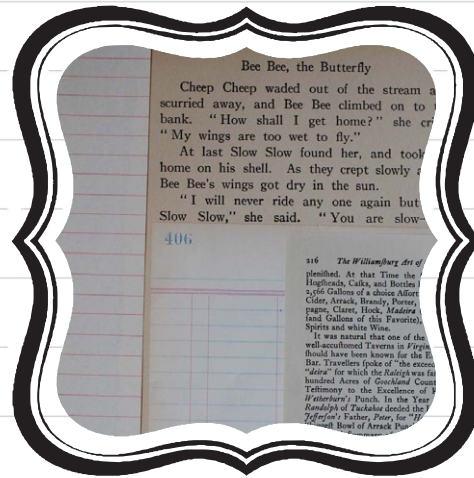 Bee Bee, the Butterfly
Cheep Cheep waded out of the stream a
scurried away, and Bee Bee climbed on to
bank. “How shall I get home?” she cri
“My wings are too wet to fly.”
At last Slow Slow found her, and took
home on his shell. As they crept slowly a
Bee Bee's wings got dry in the sun.
“I will never ride any one again but
Slow Slow,” she said. “You are slow-
406
216 The Williamſburg Art of
pleniſhed. At that Time the
Hogſheads, Caſks, and Bottles
2,566 Gallons of a choice Aſſort
Cider, Arrack, Brandy, Porter,
pagne, Claret, Hock, Madeira
(and Gallons of this Favorite),
Spirits and white Wine.
It was natural that one of the
well-accuſtomed Taverns in Virgin
ſhould have been known for the E
Bar. Travellers ſpoke of “the exceed
“deira” for which the Raleigh was fa
hundred Acres of Goochland Count
Teſtimony to the Excellence of
Wetherburn's Punch. In the Year
Randolph of Tuckahoe deeded the
Jefferſon's Father, Peter, for “H
Bowl of Arrack Pun